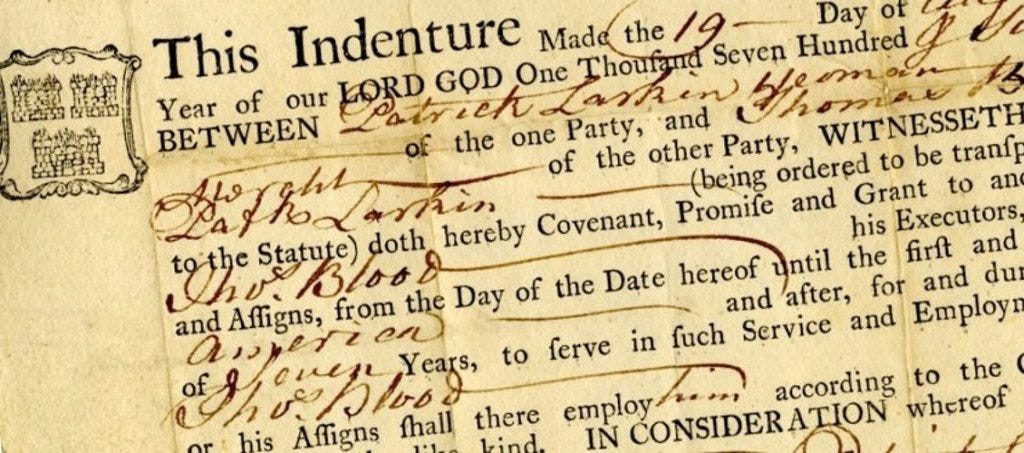 This Indenture Made the 19 Day of
Year of our LORD GOD One Thouſand Seven Hundred &
BETWEEN Patrick Larkin Yeoman
of the one Party, and Thomas
of the other Party, WITNESSETH
Patk Larkin (being ordered to be tranſp
to the Statute) doth hereby Covenant, Promiſe and Grant to and
Thos. Blood his Executors,
and Aſſigns, from the Day of the Date hereof until the firſt and
America and after, for and dur
of Seven Years, to ſerve in ſuch Service and Employm
Thos. Blood
or his Aſſigns ſhall there employ him according to the C
like kind. IN CONSIDERATION whereof